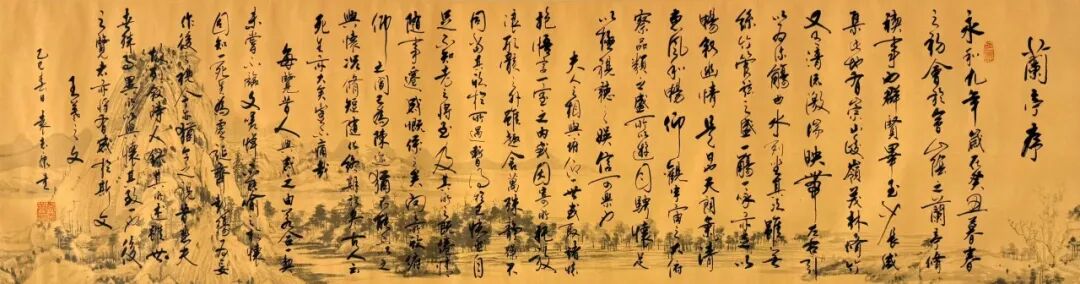 蘭亭序
永和九年歲在癸丑暮春
之初會於會稽山陰之蘭亭修
禊事也群賢畢至少長咸
集此地有崇山峻嶺茂林修竹
又有清流激湍映帶左右引
以為流觴曲水列坐其次雖無
絲竹管弦之盛一觴一詠亦足以
暢敘幽情是日也天朗氣清
惠風和暢仰觀宇宙之大俯
察品類之盛所以遊目騁懷足
以極視聽之娛信可樂也
夫人之相與俯仰一世或取諸懷
抱悟言一室之內或因寄所託放
浪形骸之外雖趣舍萬殊靜躁不
同當其欣於所遇暫得於己快然自
足不知老之將至及其所之既倦情
隨事遷感慨係之矣向之所欣俯
仰之間已為陳迹猶不能不以之
興懷況脩短隨化終期於盡古人云
死生亦大矣豈不痛哉
每覽昔人興感之由若合一契
未嘗不臨文嗟悼不能喻之於懷
固知一死生為虛誕齊彭殤為妄
作後之視今亦猶今之視昔悲夫
故列敘時人錄其所述雖世
殊事異所以興懷其致一也後
之覽者亦將有感於斯文
王羲之文
春日